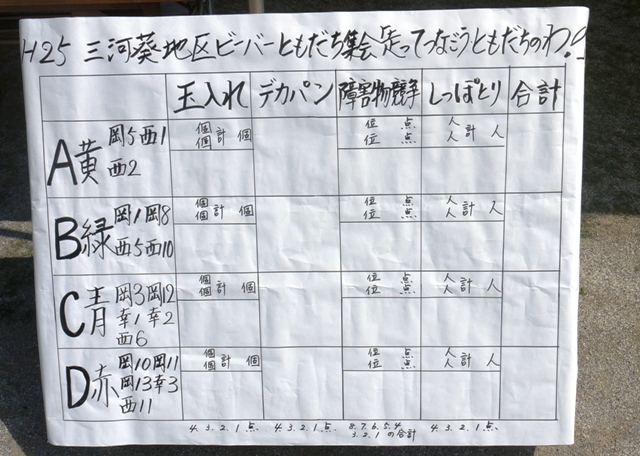 H25 三河葵地区ビーバーともだち集会「走ってつなごうともだちのわ!」
玉入れ デカパン 障害物競争 しっぽとり 合計
A黄 岡5 西1
西2
個 個 計 個
位 点
位 点
人 人 計 人
B緑 岡1 岡8
西5 西10
個 個 計 個
位 点
位 点
人 人 計 人
C青 岡3 岡12
幸1 幸2
西6
個 個 計 個
位 点
位 点
人 人 計 人
D赤 岡10 岡11
岡13 幸3
西11
個 個 計 個
位 点
位 点
人 人 計 人
4.3.2.1点 4.3.2.1点. 8.7.6.5.4 3.2.1の合計 4.3.2.1点.